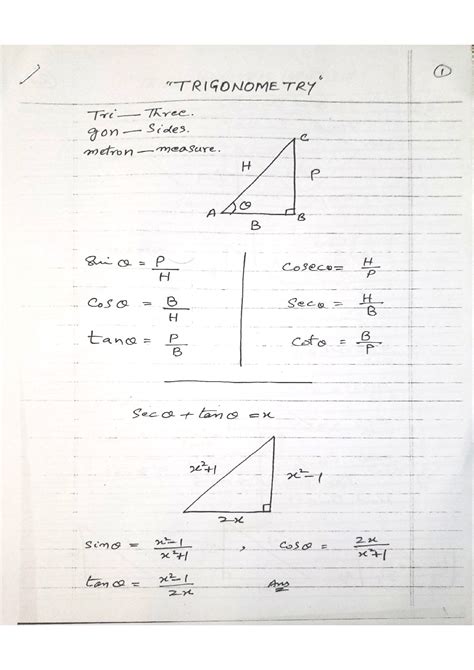 1
"TRIGONOMETRY"
Tri — Three.
gon — Sides.
metron — measure.
C
H
P
A
θ
B
B
Sin θ = P/H
Cosecθ = H/P
Cos θ = B/H
Secθ = H/B
tanθ = P/B
Cotθ = B/P
Secθ + tanθ = x
x²+1
x²-1
2x
sinθ = x²-1/x²+1 , Cosθ = 2x/x²+1
tanθ = x²-1/2x Ans